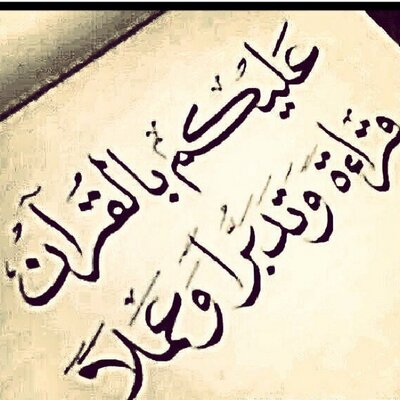 عَلَيْكُم بالقُرآنُ
قراءة وتدبّراً وَعَملاً